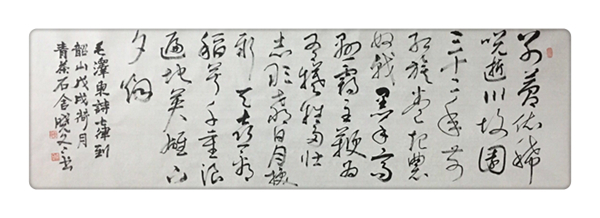 别夢依稀
咒逝川故園
三十二年前
紅旗卷起農
奴戟黑手高
懸霸主鞭為
有犧牲多壯
志敢教日月換
新天喜看
稻菽千重浪
遍地英雄下
夕烟
毛澤東詩七律到
韶山戊戌荷月
石舍